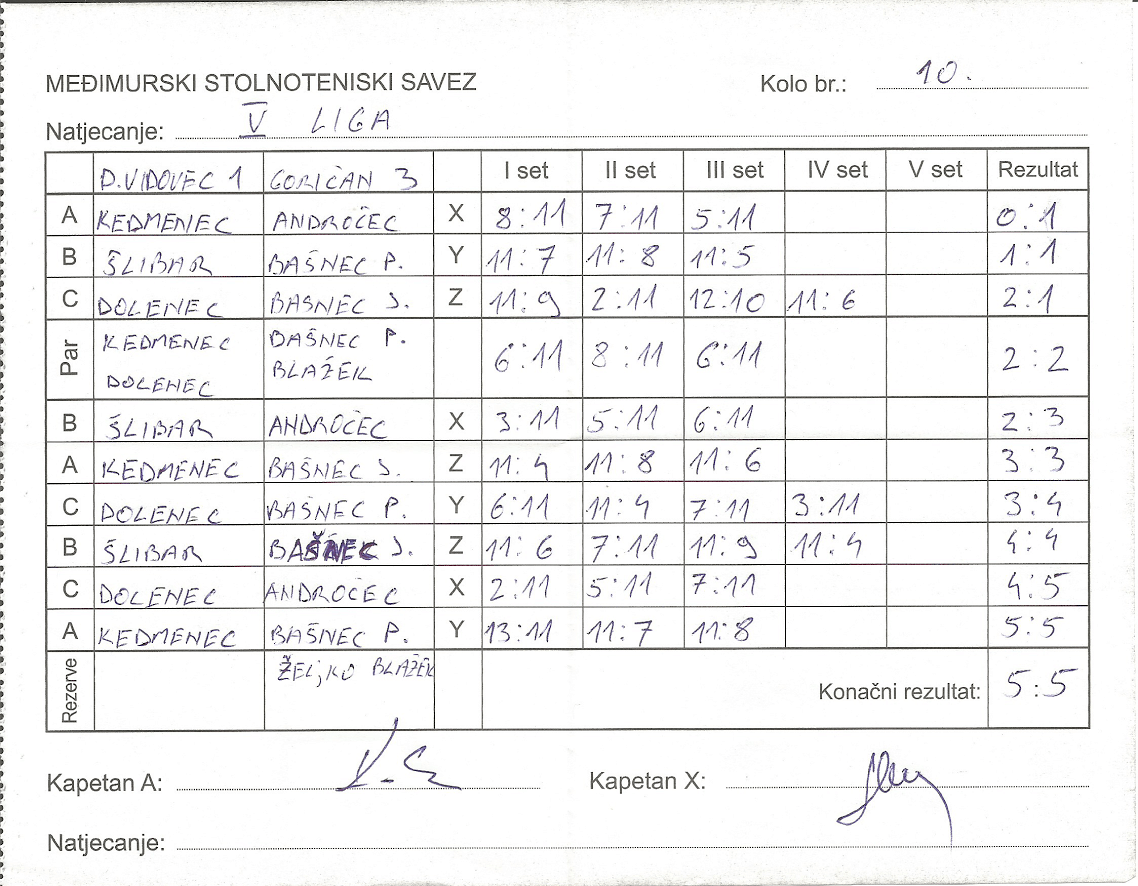 MEĐIMURSKI STOLNOTENISKI SAVEZ Kolo br.: 10.
Natjecanje: V LIGA
D.VIDOVEC 1 GORIČAN 3 I set II set III set IV set V set Rezultat
A KEDMENEC ANDROČEC X 8:11 7:11 5:11 0:1
B ŠLIBAR BAŠNEC P. Y 11:7 11:8 11:5 1:1
C DOLENEC BAŠNEC J. Z 11:9 2:11 12:10 11:6 2:1
Par KEDMENEC BAŠNEC P. 6:11 8:11 6:11 2:2
DOLENEC BLAŽEK
B ŠLIBAR ANDROČEC X 3:11 5:11 6:11 2:3
A KEDMENEC BAŠNEC J. Z 11:4 11:8 11:6 3:3
C DOLENEC BAŠNEC P. Y 6:11 11:4 7:11 3:11 3:4
B ŠLIBAR BAŠNEC J. Z 11:6 7:11 11:9 11:4 4:4
C DOLENEC ANDROČEC X 2:11 5:11 7:11 4:5
A KEDMENEC BAŠNEC P. Y 13:11 11:7 11:8 5:5
Rezerve ŽELJKO BLAŽEK Konačni rezultat: 5:5
Kapetan A: Kapetan X:
Natjecanje: